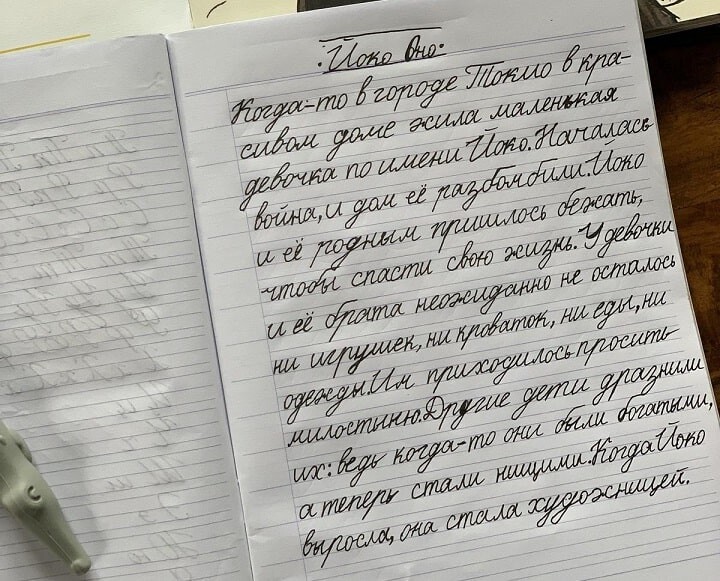 . Йоко Оно .
Когда-то в городе Токио в кра-
сивом доме жила маленькая
девочка по имени Йоко. Началась
война, и дом её разбомбили. Йоко
и её родным пришлось бежать,
чтобы спасти свою жизнь. У девочки
и её брата неожиданно не осталось
ни игрушек, ни кроваток, ни еды, ни
одежды. Им приходилось просить
милостыню. Другие дети дразнили
их: ведь когда-то они были богатыми,
а теперь стали нищими. Когда Йоко
выросла, она стала художницей.